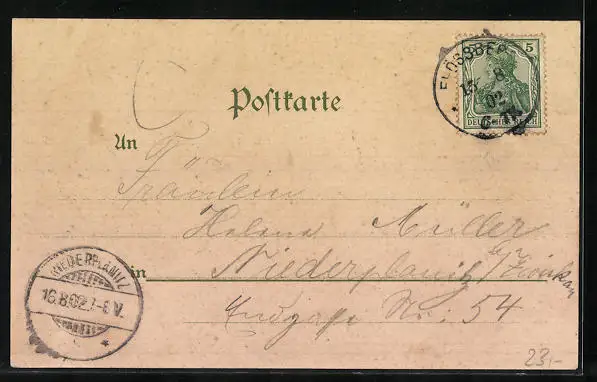 FLÖSSBERG
15 8
02
6-7N
5
DEUTSCHES REICH
Postkarte
An
Fräulein
Helene Müller
in Niederplanitz b/Zwickau
Nr. 54
NIEDERPLANITZ
16.8.02.7-8V.
23,-